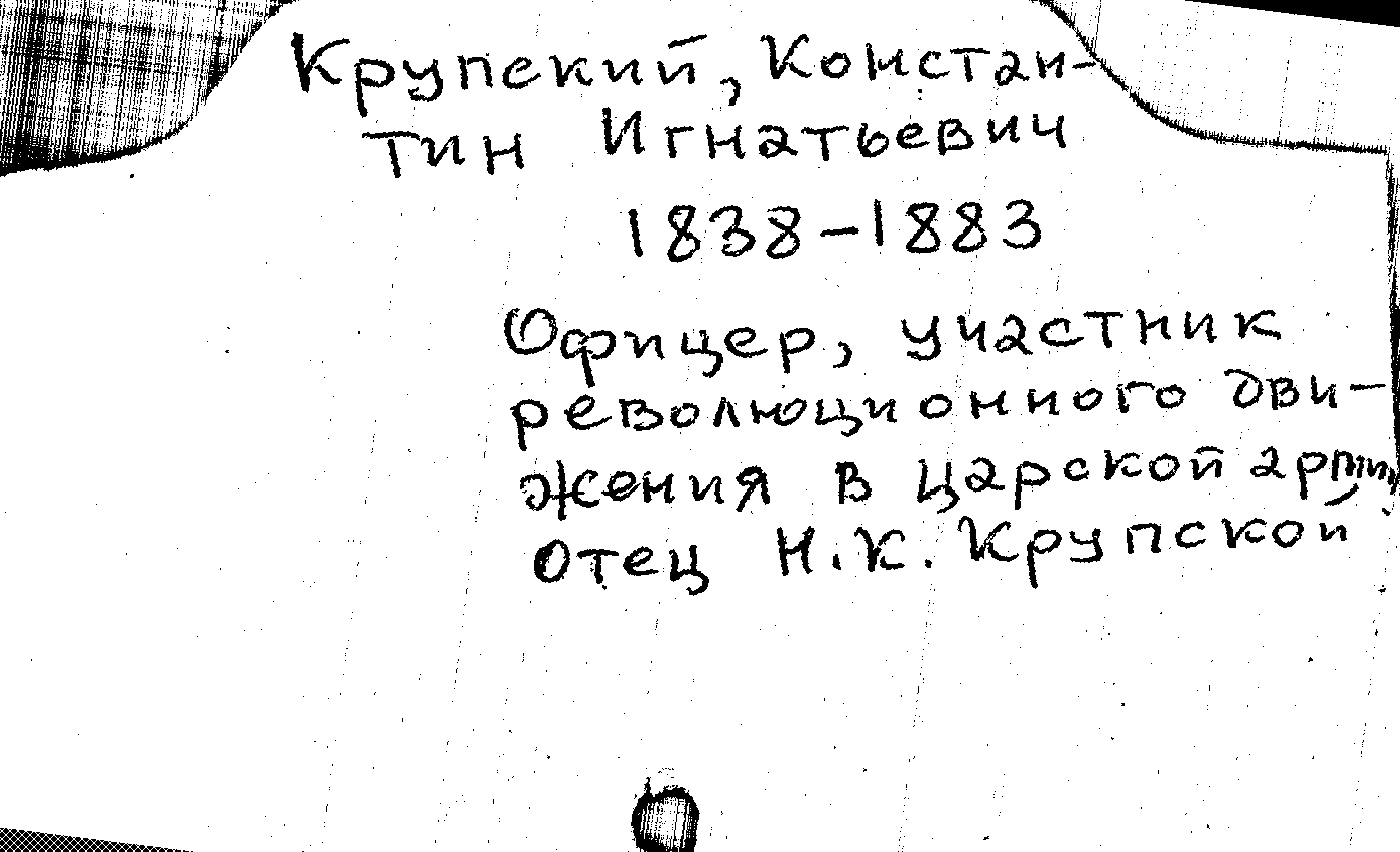 Крупский, Констан-
тин Игнатьевич
1838-1883
Офицер, участник
революционного дви-
жения в царской армии,
Отец Н.К. Крупской